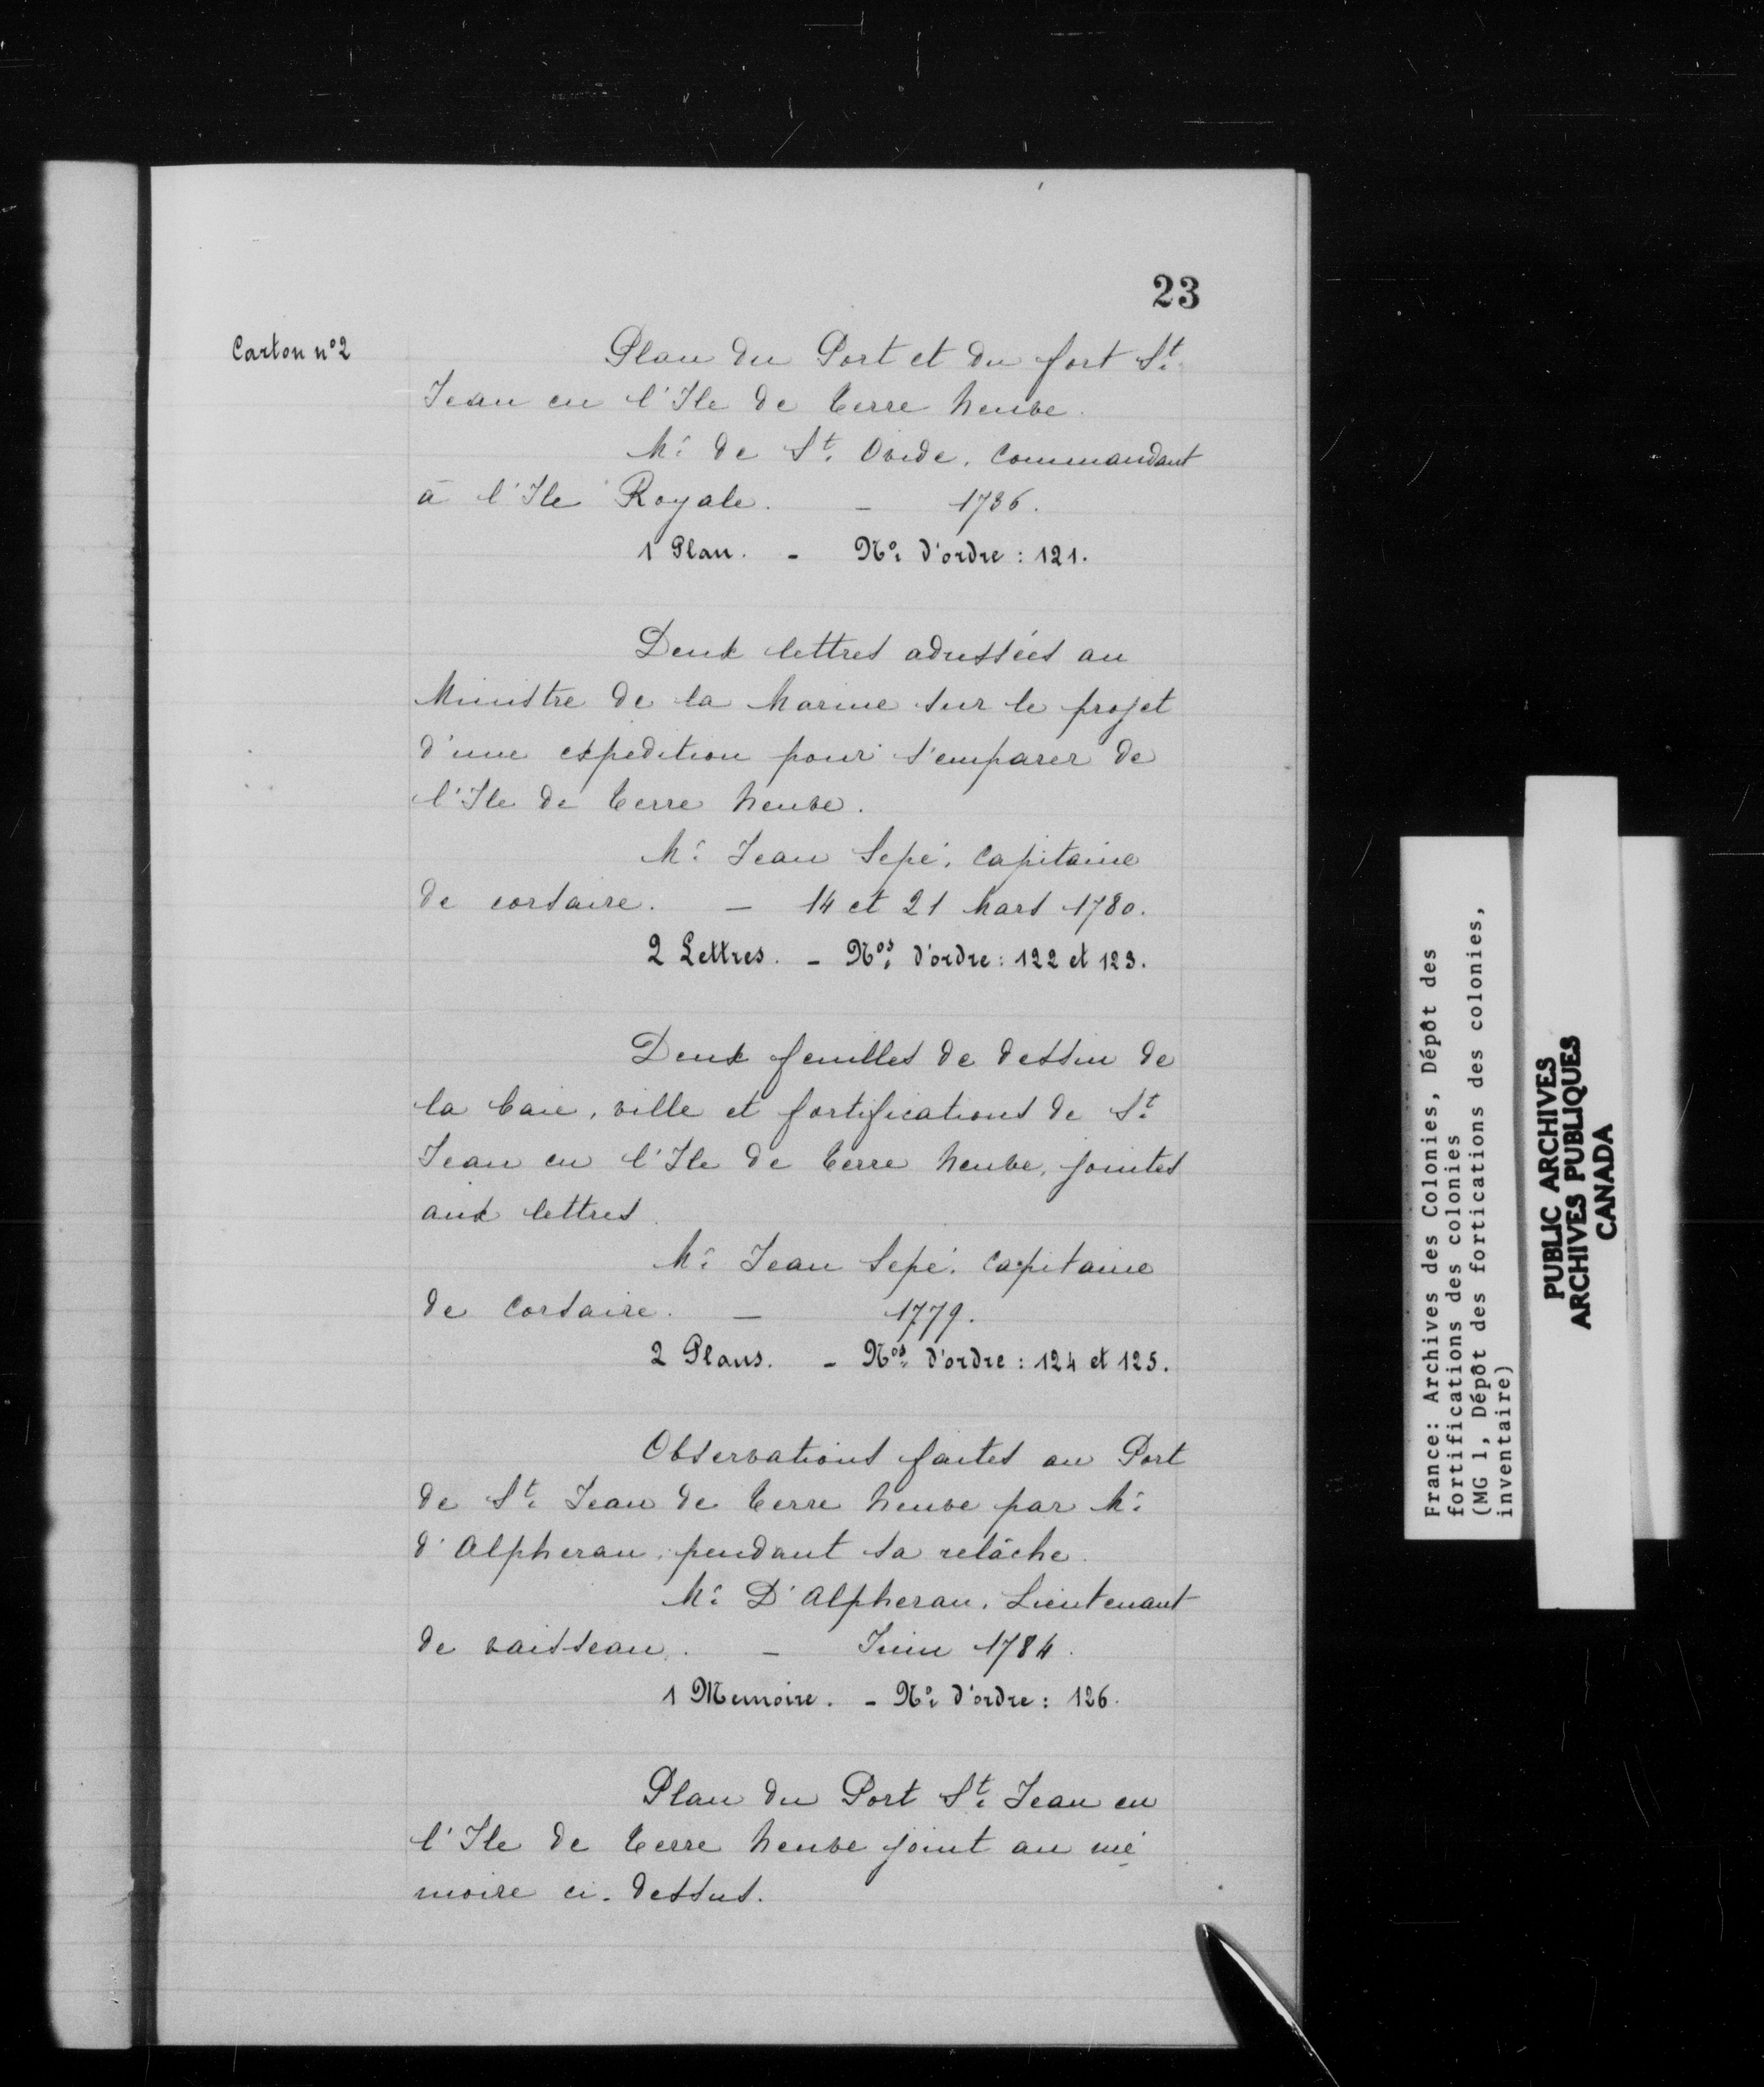 23
Carton n° 2
Plan du Port et du fort St.
Jean en l'Ile de Terre Neuve.
Mr. de St. Ovide, Commandant
à l'Ile Royale. — 1736.
1 Plan. - No. d'ordre : 121.
Deux lettres adressées au
Ministre de la Marine sur le projet
d'une expedition pour s'emparer de
l'Ile de Terre Neuve.
Mr. Jean Sepé, Capitaine
de corsaire. — 14 et 21 Mars 1780.
2 Lettres. - Nos. d'ordre : 122 et 123.
Deux feuilles de dessin de
la baie, ville et fortifications de St.
Jean en l'Ile de Terre Neuve, jointes
aux lettres.
Mr. Jean Sepé, Capitaine
de Corsaire. — 1779.
2 Plans. - Nos. d'ordre : 124 et 125.
Observations faites au Port
de St. Jean de Terre Neuve par Mr.
d'Alpheran, pendant sa relâche.
Mr. D'Alpheran, Lieutenant
de vaisseau. — Juin 1784.
1 Memoire. - No. d'ordre : 126.
Plan du Port St. Jean en
l'Ile de Terre Neuve joint au mé
moire ci-dessus.
France: Archives des Colonies, Dépôt des
fortifications des colonies
(MG 1, Dépôt des fortications des colonies,
inventaire)
PUBLIC ARCHIVES
ARCHIVES PUBLIQUES
CANADA